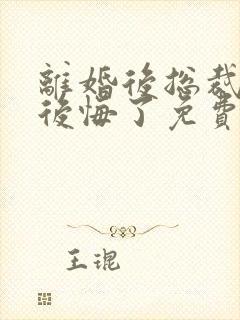 離婚後总裁
後悔了免費
王琨